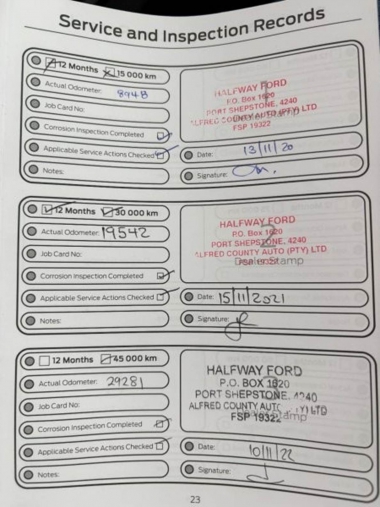 Service and Inspection Records
12 Months 15 000 km
Actual Odometer: 8948
Job Card No:
Corrosion Inspection Completed
Applicable Service Actions Checked
Notes:
HALFWAY FORD
P.O. Box 1620
PORT SHEPSTONE, 4240
ALFRED COUNTY AUTO (PTY) LTD
FSP 19322
Date: 13/11/20
Signature:
12 Months 30 000 km
Actual Odometer: 19542
Job Card No:
Corrosion Inspection Completed
Applicable Service Actions Checked
Notes:
HALFWAY FORD
P.O. Box 1620
PORT SHEPSTONE, 4240
ALFRED COUNTY AUTO (PTY) LTD
Dealer Stamp
Date: 15/11/2021
Signature:
12 Months 45 000 km
Actual Odometer: 29281
Job Card No:
Corrosion Inspection Completed
Applicable Service Actions Checked
Notes:
HALFWAY FORD
P.O. BOX 1620
PORT SHEPSTONE, 4240
ALFRED COUNTY AUTO (PTY) LTD
FSP 19322
Date: 10/11/22
Signature:
23